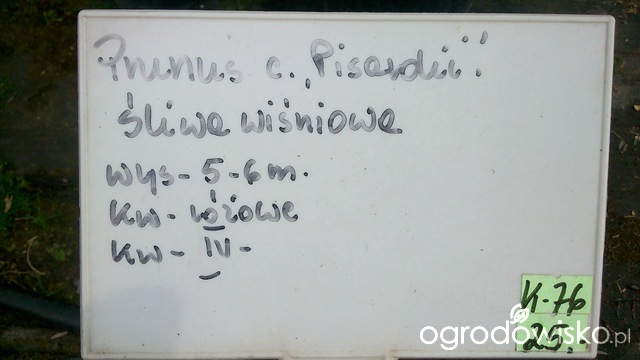 Prunus c. „Pissardii"
śliwa wiśniowa
wys - 5 - 6 m.
kw - różowe
kw - IV -
K-76
25.-
ogrodowisko.pl